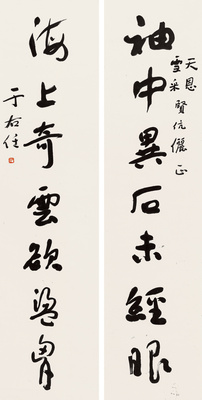 天恩
雪采賢伉儷正
袖中異石未經眼
海上奇雲欲盪胷
于右任